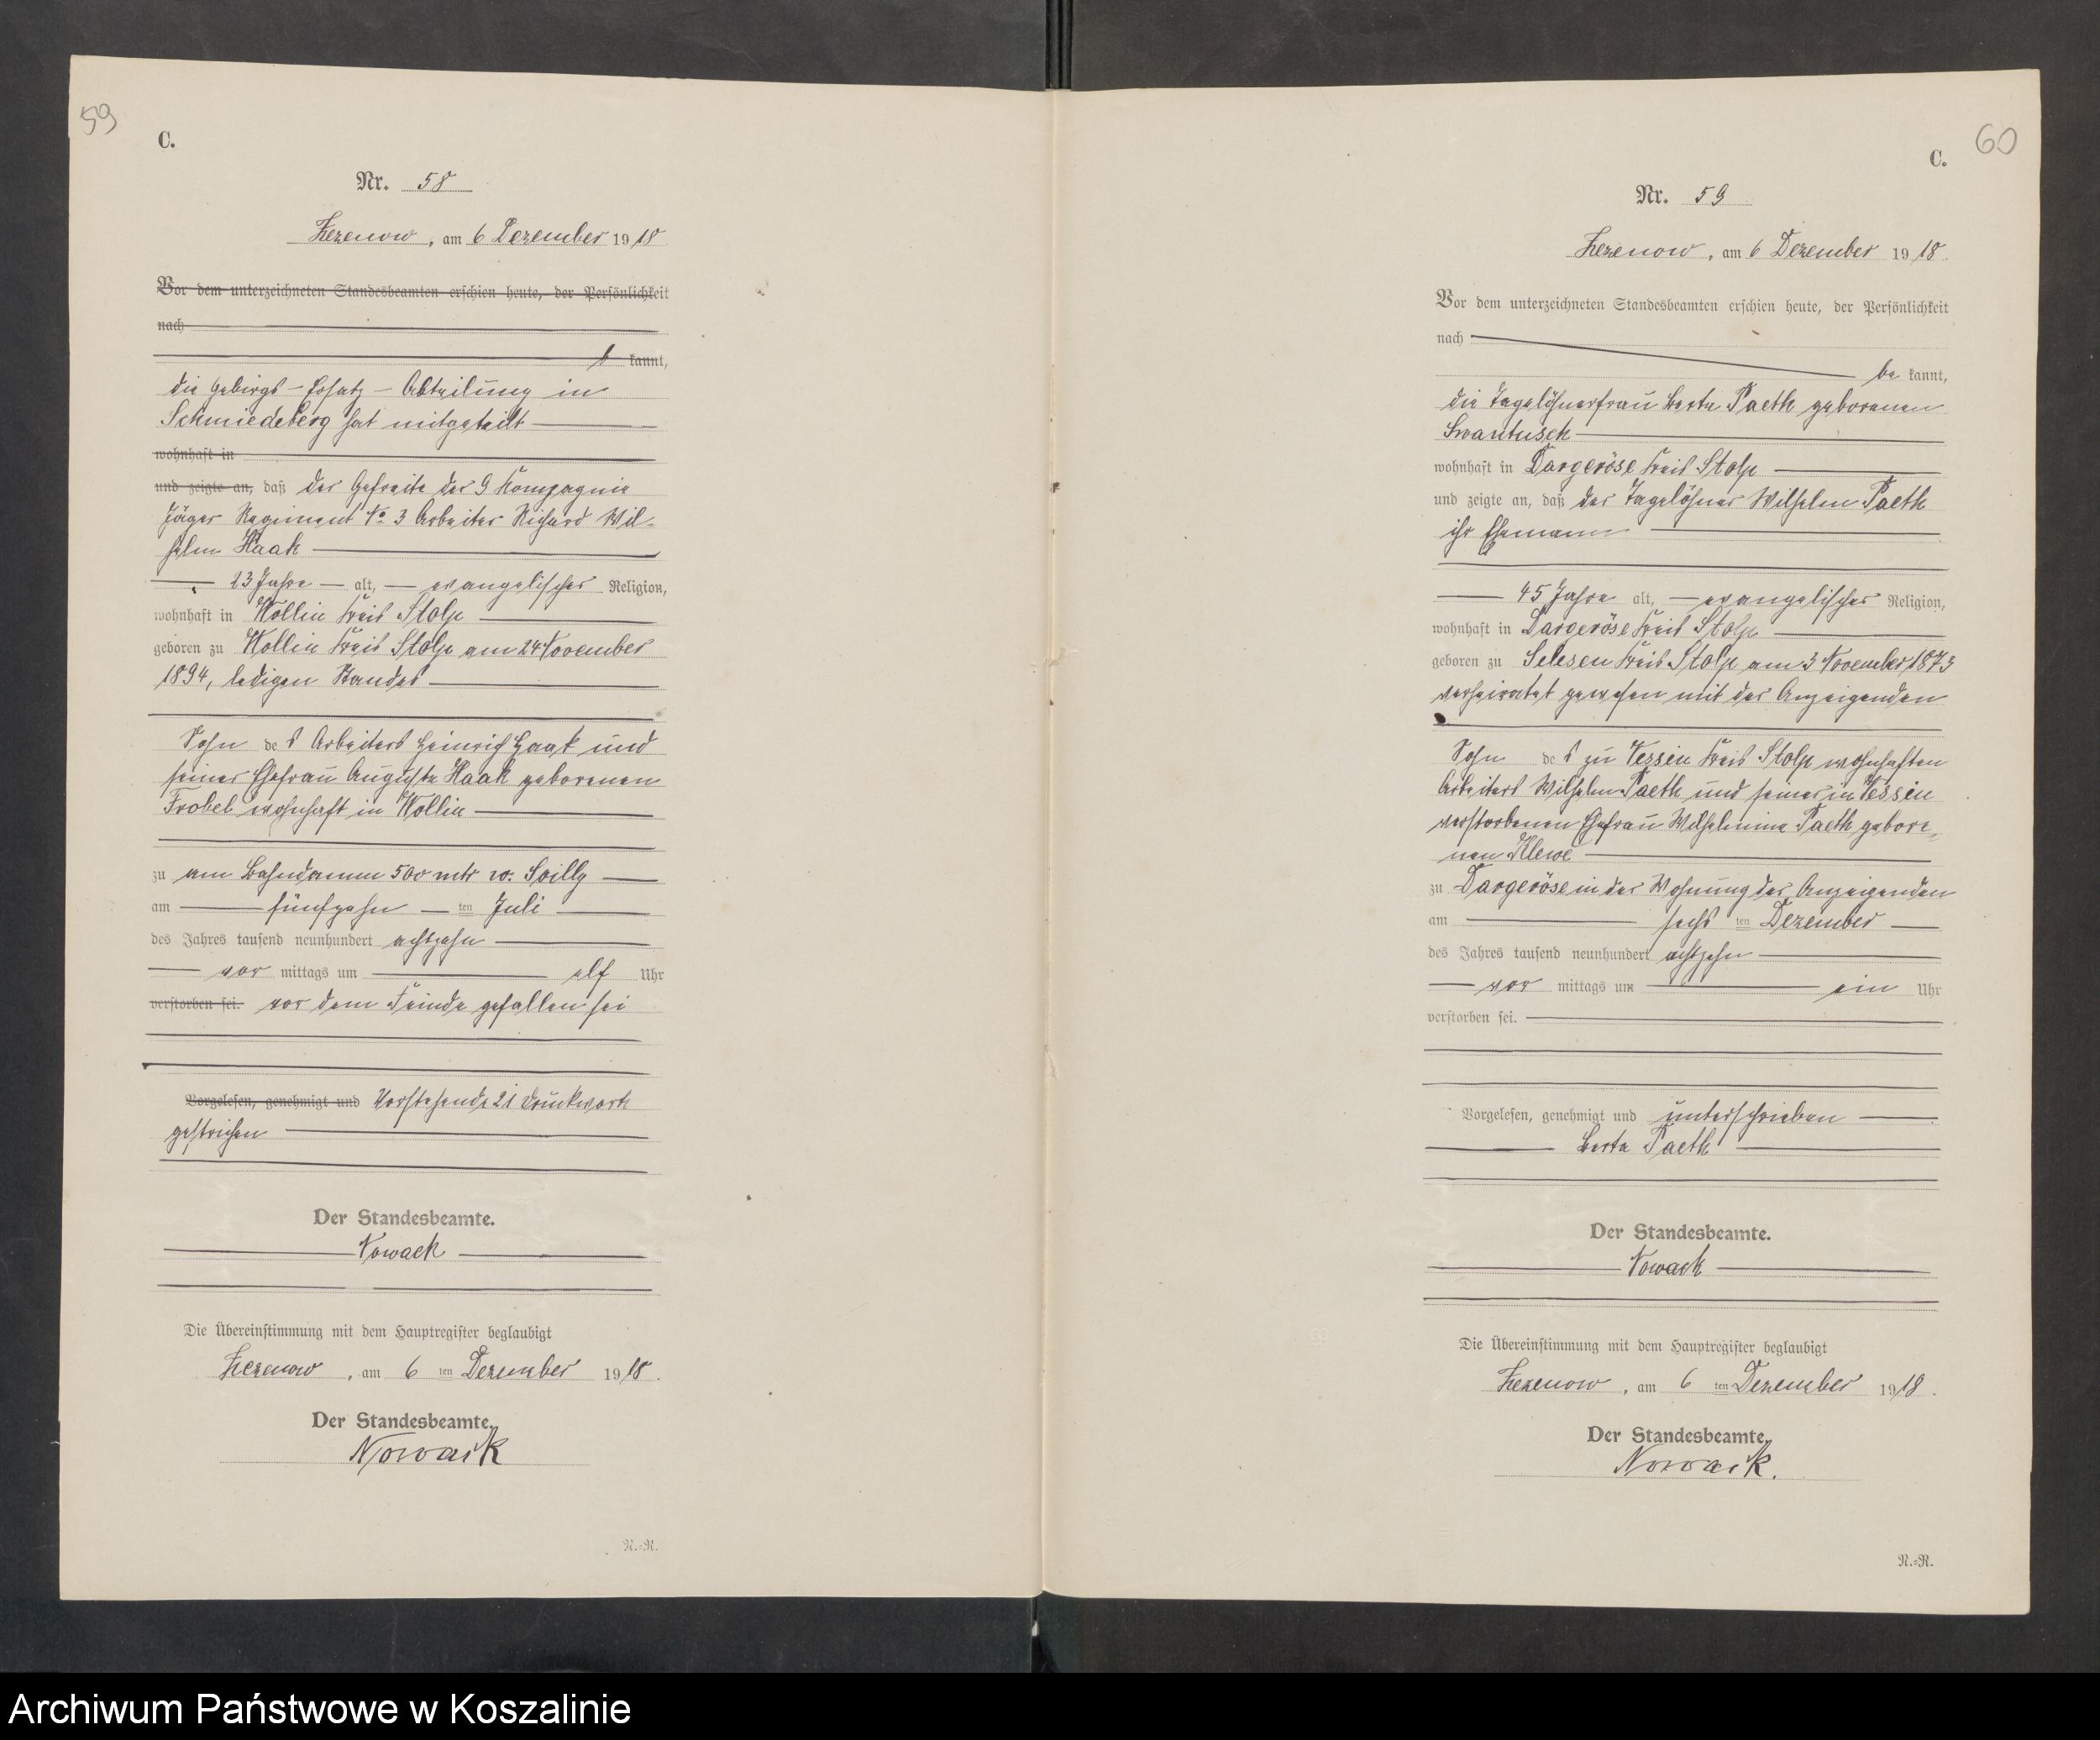 59
C.
Nr. 58
Zezenow, am 6 Dezember 1918
Vor dem unterzeichneten Standesbeamten erschien heute, der Persönlichkeit
nach
kannt,
die Gebirgs-Ersatz-Abteilung in
Schmiedeberg hat mitgeteilt
wohnhaft in
und zeigte an, daß der Gefreite der 9 Kompagnie
Jäger Regiment No 3 Arbeiter Richard Wil-
helm Haak
23 Jahre alt, evangelischer Religion,
wohnhaft in Wollin Kreis Stolp
geboren zu Wollin Kreis Stolp am 24 November
1894, ledigen Standes
Sohn des Arbeiters Heinrich Haak und
seiner Ehefrau Auguste Haak geborenen
Frobel wohnhaft in Wollin
zu am Bahndamm 500 mtr w. Soilly
am fünfzehn ten Juli
des Jahres tausend neunhundert achtzehn
vor mittags um elf Uhr
verstorben sei. vor dem Feinde gefallen sei
Vorgelesen, genehmigt und Vorstehende 21 Druckworte
gestrichen
Der Standesbeamte.
Nowack
Die Übereinstimmung mit dem Hauptregister beglaubigt
Zezenow, am 6 ten Dezember 1918.
Der Standesbeamte.
Nowack
N.=R.
60
C.
Nr. 59
Zezenow, am 6 Dezember 1918.
Vor dem unterzeichneten Standesbeamten erschien heute, der Persönlichkeit
nach
be kannt,
die Tagelöhnerfrau Berta Paeth geborenen
Swantusch
wohnhaft in Dargeröse Kreis Stolp
und zeigte an, daß der Tagelöhner Wilhelm Paeth
ihr Ehemann
45 Jahre alt, evangelischer Religion,
wohnhaft in Dargeröse Kreis Stolp
geboren zu Selesen Kreis Stolp am 3 November 1873
verheiratet gewesen mit der Anzeigenden
Sohn des zu Vessin Kreis Stolp wohnhaften
Arbeiters Wilhelm Paeth und seiner in Vessin
verstorbenen Ehefrau Wilhelmine Paeth gebore-
nen Klewe
zu Dargeröse in der Wohnung der Anzeigenden
am sechs ten Dezember
des Jahres tausend neunhundert achtzehn
vor mittags um ein Uhr
verstorben sei.
Vorgelesen, genehmigt und unterschrieben
Berta Paeth
Der Standesbeamte.
Nowack
Die Übereinstimmung mit dem Hauptregister beglaubigt
Zezenow, am 6 ten Dezember 1918.
Der Standesbeamte.
Nowack.
N.=R.
Archiwum Państwowe w Koszalinie